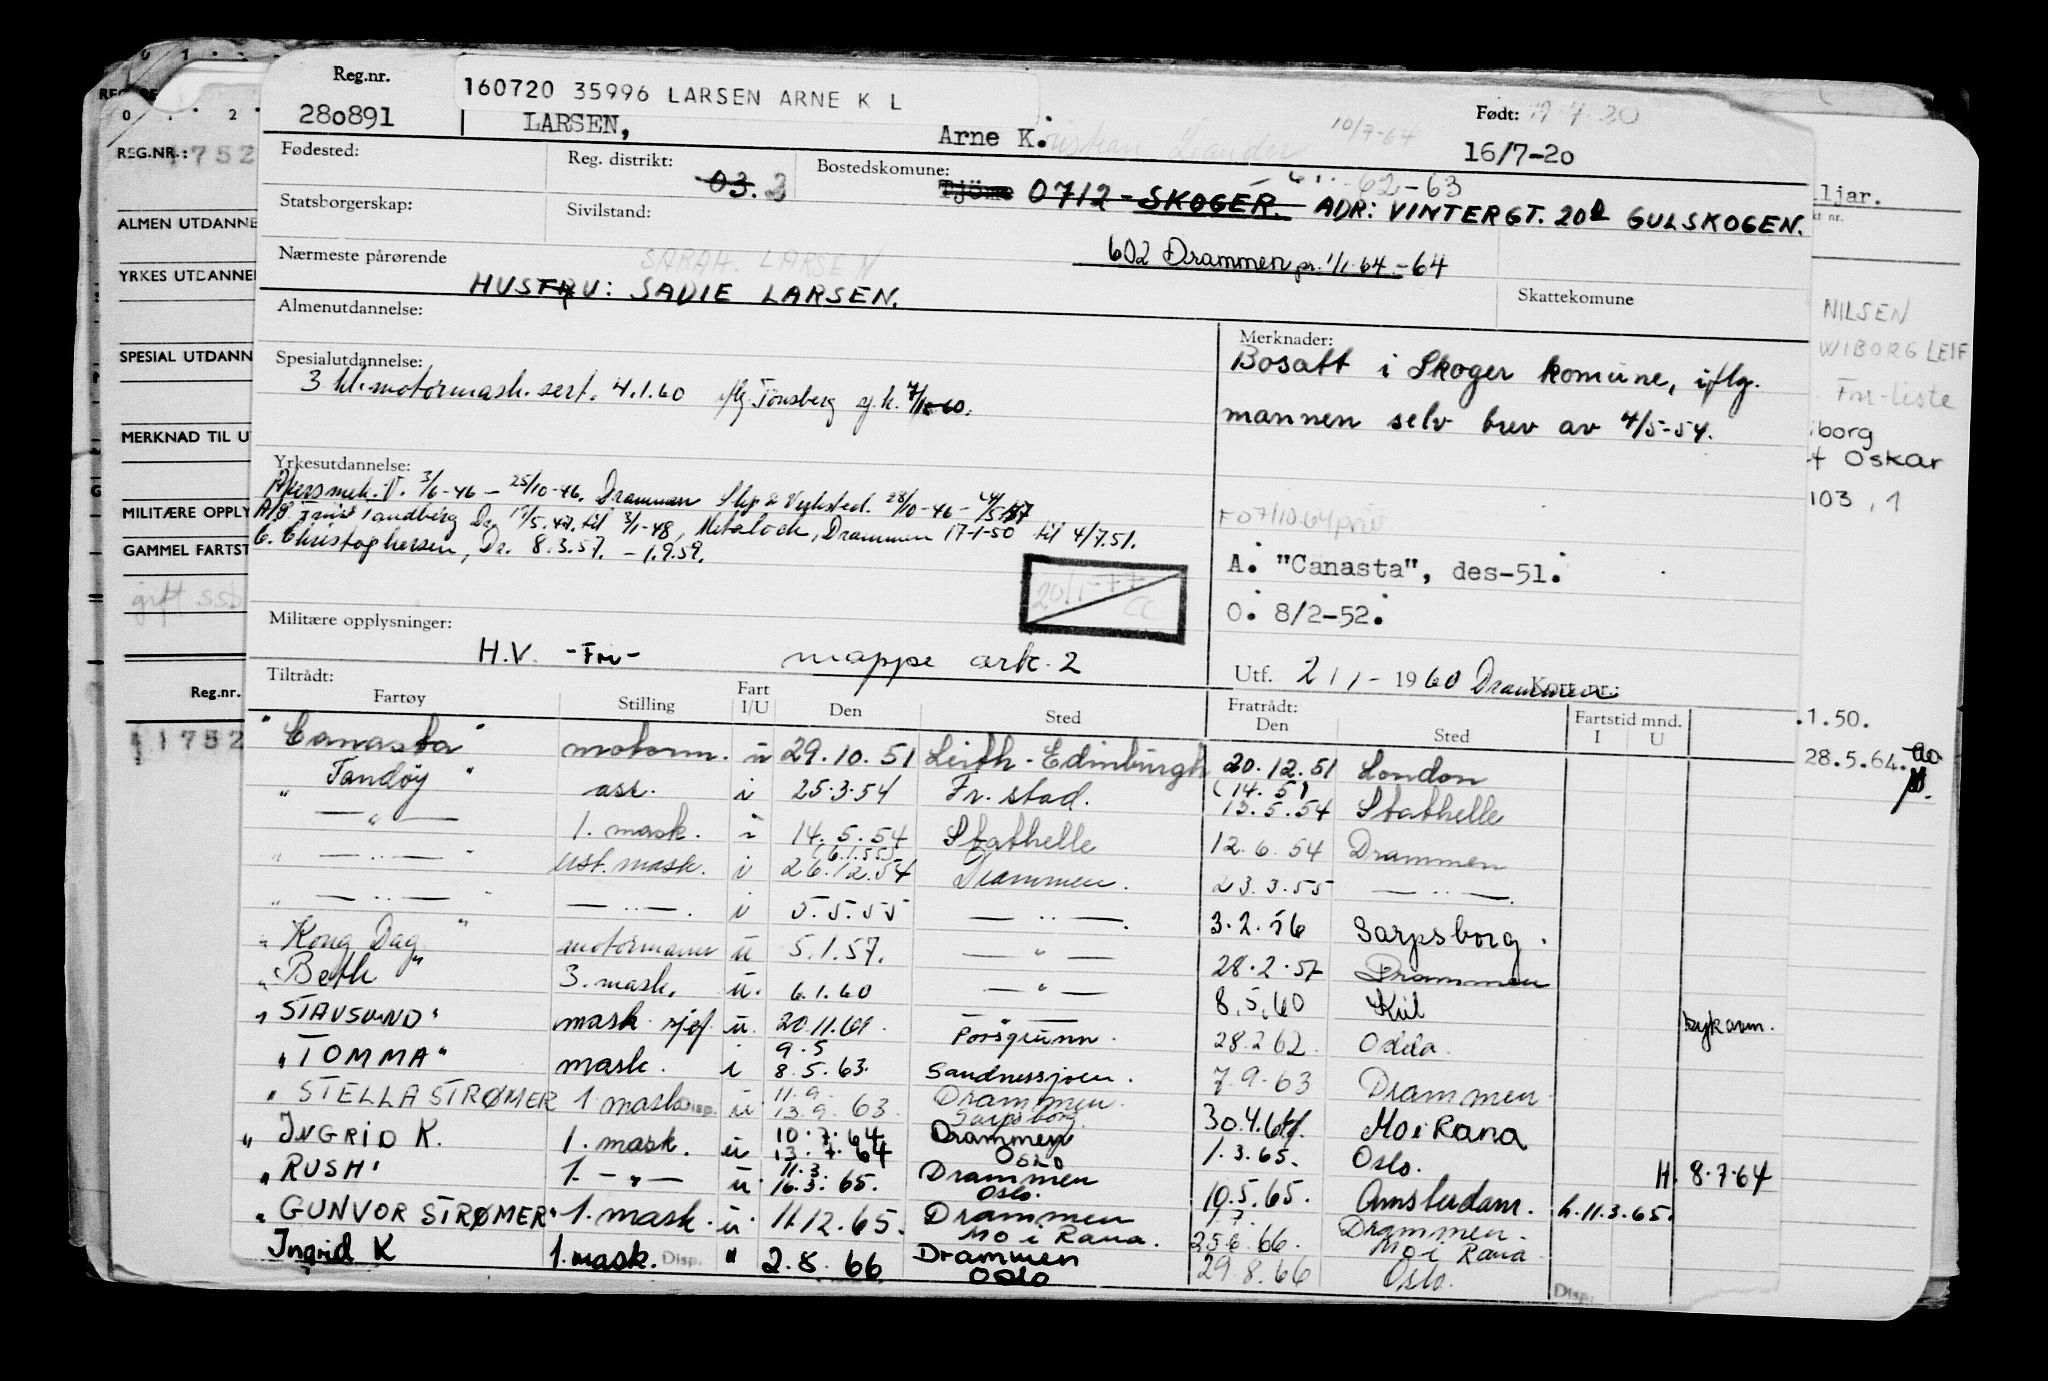 Reg.nr.
160720 35996 LARSEN ARNE K L
280891
LARSEN,
Arne K.
10/7-64
Født:
16/7-20
Fødested:
Reg. distrikt:
03. 3
Bostedskomune:
Tjöme 0712 - SKOGER. ADR: VINTERGT. 20 GULSKOGEN.
62-63
Statsborgerskap:
Sivilstand:
602 Drammen pr. 1/1-64.-64
Nærmeste pårørende
SARAH. LARSEN
HUSTRU: SADIE LARSEN.
Skattekomune
Almenutdannelse:
Merknader:
Bosatt i Skoger komune, iflg.
mannen selv brev av 4/5-54.
Spesialutdannelse:
3 kl. motormask. sert. 4.1.60 iflg. Tønsberg
Yrkesutdannelse:
Akers mek. V. 3/6-46 - 25/10-46. Drammen Slip & Verksted. 28/10-46 -
Tandberg Dr. til 3/1-48, Metalock, Drammen 17-1-50 til 4/7.51.
C. Christophersen, Dr. 8.3.57. - 1.9.59.
A. "Canasta", des-51.
O. 8/2-52.
Militære opplysninger:
H.V. -Fri-
mappe ark. 2
Utf. 2/1- 1960 Drammen
Kort nr.:
Tiltrådt:
Fartøy
Stilling
Fart
I/U
Den
Sted
Fratrådt:
Den
Sted
Fartstid mnd.
I U
"Canasta" motorm. u 29.10.51 Leith-Edinburgh 20.12.51 London
" Tandøy " ass. i 25.3.54 Fr.stad. 13.5.54 Stathelle
— " — 1. mask. i 14.5.54 Stathelle 12.6.54 Drammen
" — " — " mask. i 26.12.54 (6.1.55) Drammen. 23.3.55 — " —
" — " — " — " — i 5.5.55 — " — 3.2.56 Sarpsborg.
" Kong Dag " motormann u 5.1.57. — " — 28.2.57 Drammen
" Beth " 3. mask. u. 6.1.60 — " — 8.5.60 Kiel
" STAVSUND " mask. sjef u. 20.11.61 Porsgrunn. 28.2.62. Odda.
" TOMMA " mask. i 9.5 8.5.63. Sandnessjøen. 7.9.63 Drammen
" STELLA STRØMER 1 mask Disp. u. 11.9. 13.9.63. Drammen. Sarpsborg. 30.4.64. Mo i Rana
" INGRID K. 1. mask. u 10.7.64 13.7.64 Drammen Oslo 1.3.65. Oslo. H. 8.7.64
" RUSH " 1. — " — u 11.3. 16.3.65. Drammen Oslo. 10.5.65. Amsterdam. h. 11.3.65.
" GUNVOR STRØMER " 1. mask. u 11.12.65. Drammen Mo i Rana. 1.7. 25.6.66. Drammen. Mo i Rana
Ingrid K 1. mask. Disp. " 2.8.66 Drammen Oslo 29.8.66 Oslo.
Disp.
REG.NR.: 1752
ALMEN UTDANNE
YRKES UTDANNE
SPESIAL UTDANN
MERKNAD TIL U
MILITÆRE OPPLY
GAMMEL FARTST
gift
Reg.nr.
1752
ljar.
NILSEN
WIBORG LEIF
Fm-liste
iborg
Oskar
103, 1
.1.50.
28.5.64.